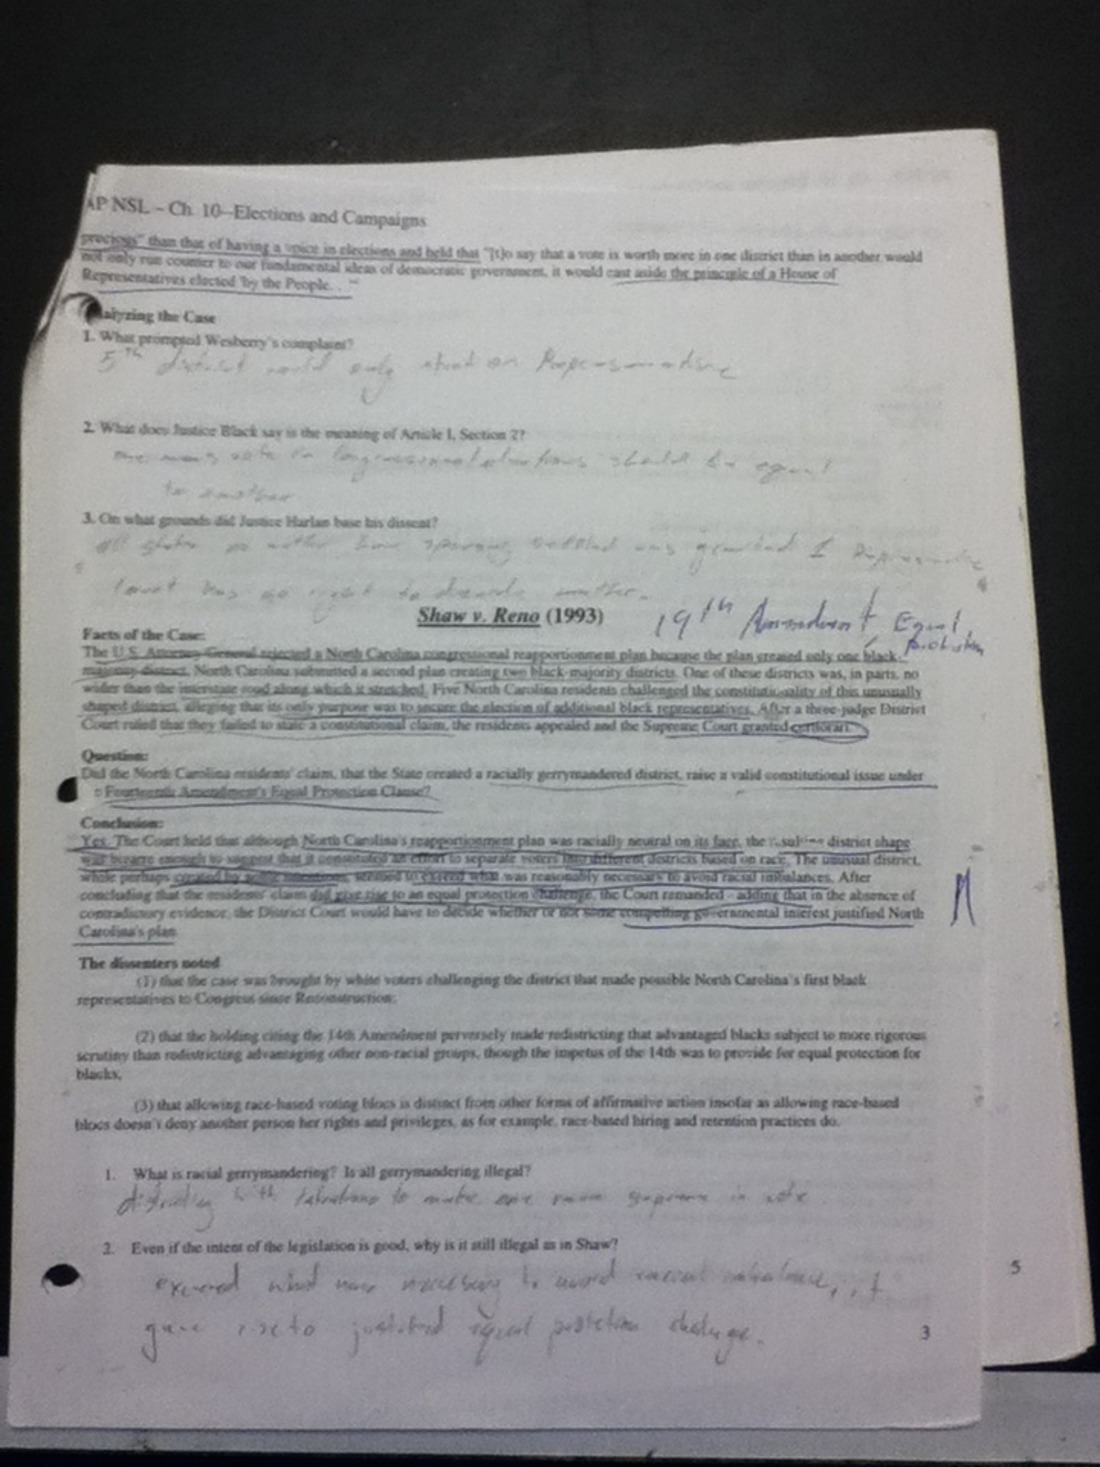 AP NSL - Ch. 10--Elections and Campaigns
precious" than that of having a voice in elections and held that "[t]o say that a vote is worth more in one district than in another would
not only run counter to our fundamental ideas of democratic government, it would cast aside the principle of a House of
Representatives elected 'by the People. . ."
alyzing the Case
1. What prompted Wesberry's complaint?
5th district could only elect on Representative
2. What does Justice Black say is the meaning of Article I, Section 2?
vote in congressional elections should be equal
to another
3. On what grounds did Justice Harlan base his dissent?
all states no matter how settled was granted 1
court has no right to decide matter.
Shaw v. Reno (1993)
19th Amendment Equal
protection
Facts of the Case:
The U.S. Attorney General rejected a North Carolina congressional reapportionment plan because the plan created only one black-
majority district. North Carolina submitted a second plan creating two black-majority districts. One of these districts was, in parts, no
wider than the interstate road along which it stretched. Five North Carolina residents challenged the constitutionality of this unusually
shaped district, alleging that its only purpose was to secure the election of additional black representatives. After a three-judge District
Court ruled that they failed to state a constitutional claim, the residents appealed and the Supreme Court granted certiorari.
Question:
Did the North Carolina residents' claim, that the State created a racially gerrymandered district, raise a valid constitutional issue under
e Fourteenth Amendment's Equal Protection Clause?
Conclusion:
Yes. The Court held that although North Carolina's reapportionment plan was racially neutral on its face, the resulting district shape
was bizarre enough to suggest that it constituted an effort to separate voters into different districts based on race. The unusual district,
while perhaps created by noble intentions, seemed to exceed what was reasonably necessary to avoid racial imbalances. After
concluding that the residents' claim did give rise to an equal protection challenge, the Court remanded - adding that in the absence of
contradictory evidence, the District Court would have to decide whether or not some compelling governmental interest justified North
Carolina's plan
The dissenters noted
(1) that the case was brought by white voters challenging the district that made possible North Carolina's first black
representatives to Congress since Reconstruction;
(2) that the holding citing the 14th Amendment perversely made redistricting that advantaged blacks subject to more rigorous
scrutiny than redistricting advantaging other non-racial groups, though the impetus of the 14th was to provide for equal protection for
blacks;
(3) that allowing race-based voting blocs is distinct from other forms of affirmative action insofar as allowing race-based
blocs doesn't deny another person her rights and privileges, as for example, race-based hiring and retention practices do.
1. What is racial gerrymandering? Is all gerrymandering illegal?
with to make one in vote
2. Even if the intent of the legislation is good, why is it still illegal as in Shaw?
exceeed what was necessary to avoid racial imbalance, it
gave rise to justified equal protection challenge.
3
5